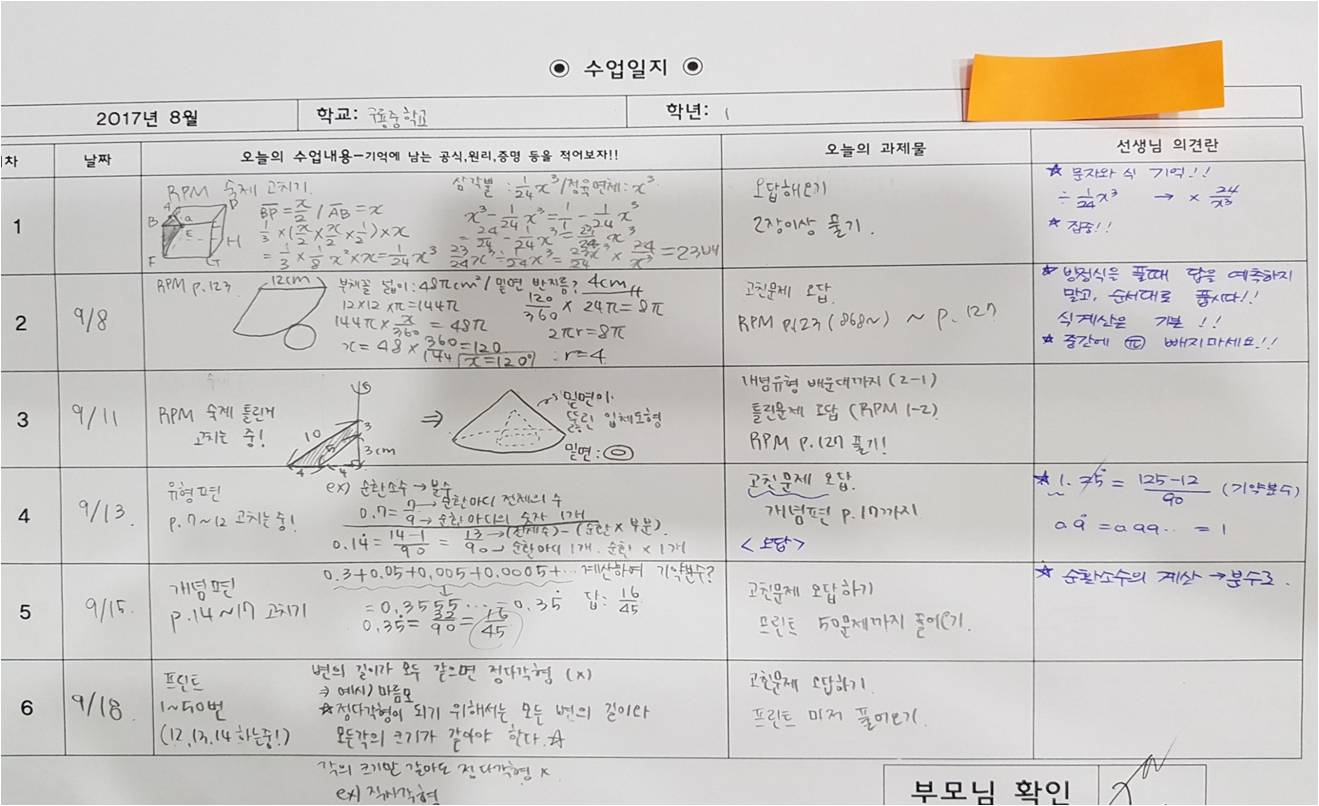 ◉ 수업일지 ◉
2017년 8월 학교: 구룡중학교 학년: 1
차 날짜 오늘의 수업내용-기억에 남는 공식,원리,증명 등을 적어보자!! 오늘의 과제물 선생님 의견란
1
RPM 숙제 고치기.
삼각뿔 : 1/24 x³ / 정육면체 : x³
A D B E F G H
BP = x/2 / AB = x
1/3 × (x/2 × x/2 × 1/2) × x
= 1/3 × 1/8 x² × x = 1/24 x³
x³ - 1/24 x³ = 1/1 - 1/24 x³
= 24/24 - 1/24 x³ = 23/24 x³
23/24 x³ ÷ 1/24 x³ = 23/24 x³ × 24/x³ = 23배
오답해오기
2장이상 풀기.
☆ 문자와 식 기억!!
÷ 1/24 x³ → × 24/x³
☆ 집중!!
2 9/8
RPM p.123
12cm
부채꼴 넓이 : 48π cm² / 밑면 반지름? 4cm
12×12×π = 144π
144π × x/360 = 48π
x = 48 × 360/144 = 120
x = 120°
120/360 × 24π = 8π
2πr = 8π
∴ r = 4
고친문제 오답
RPM p.123 (868~) ~ p.127
☆ 방정식을 풀때 답을 예측하지
말고, 순서대로 풉시다!!
식계산은 기본!!
☆ 중간에 π 빼지마세요!!
3 9/11
RPM 숙제 틀린거
고치는 중!
10 5 3 3cm 4 4
⇒
밑면이
뚫린 입체도형
밑면 : ◎
개념유형 배운데까지 (2-1)
틀린문제 오답 (RPM 1-2)
RPM p.127 풀기!
4 9/13.
유형편
p.7~12 고치는 중!
ex) 순환소수 → 분수
0.7̇ = 7/9 → 순환마디 전체의 수
→ 순환마디의 숫자 1개
0.14̇ = 14-1/90 = 13/90 → (전체수) - (순환 × 부분).
→ 순환마디 1개. 순환 × 1개
고친문제 오답.
개념편 p.17까지
<오답>
☆ 1.25̇ = 125-12/90 (기약분수)
5 9/15.
개념편
p.14~17 고치기
0.3+0.05+0.005+0.0005+… 계산하여 기약분수?
= 0.3555… = 0.35̇ 답 : 16/45
0.35̇ = 32/90 = 16/45
고친문제 오답하기
프린트 50문제까지 풀어오기.
☆ 순환소수의 계산 → 분수로.
6 9/18.
프린트
1~50번
(12,13,14 하는중!)
변의 길이가 모두 같으면 정다각형 (x)
⇒ 예시) 마름모
☆정다각형이 되기 위해서는 모든 변의 길이와
모든각의 크기가 같아야 한다.☆
각의 크기만 같아도 정다각형 x
ex) 직사각형
고친문제 오답하기.
프린트 마저 풀어오기.
부모님 확인